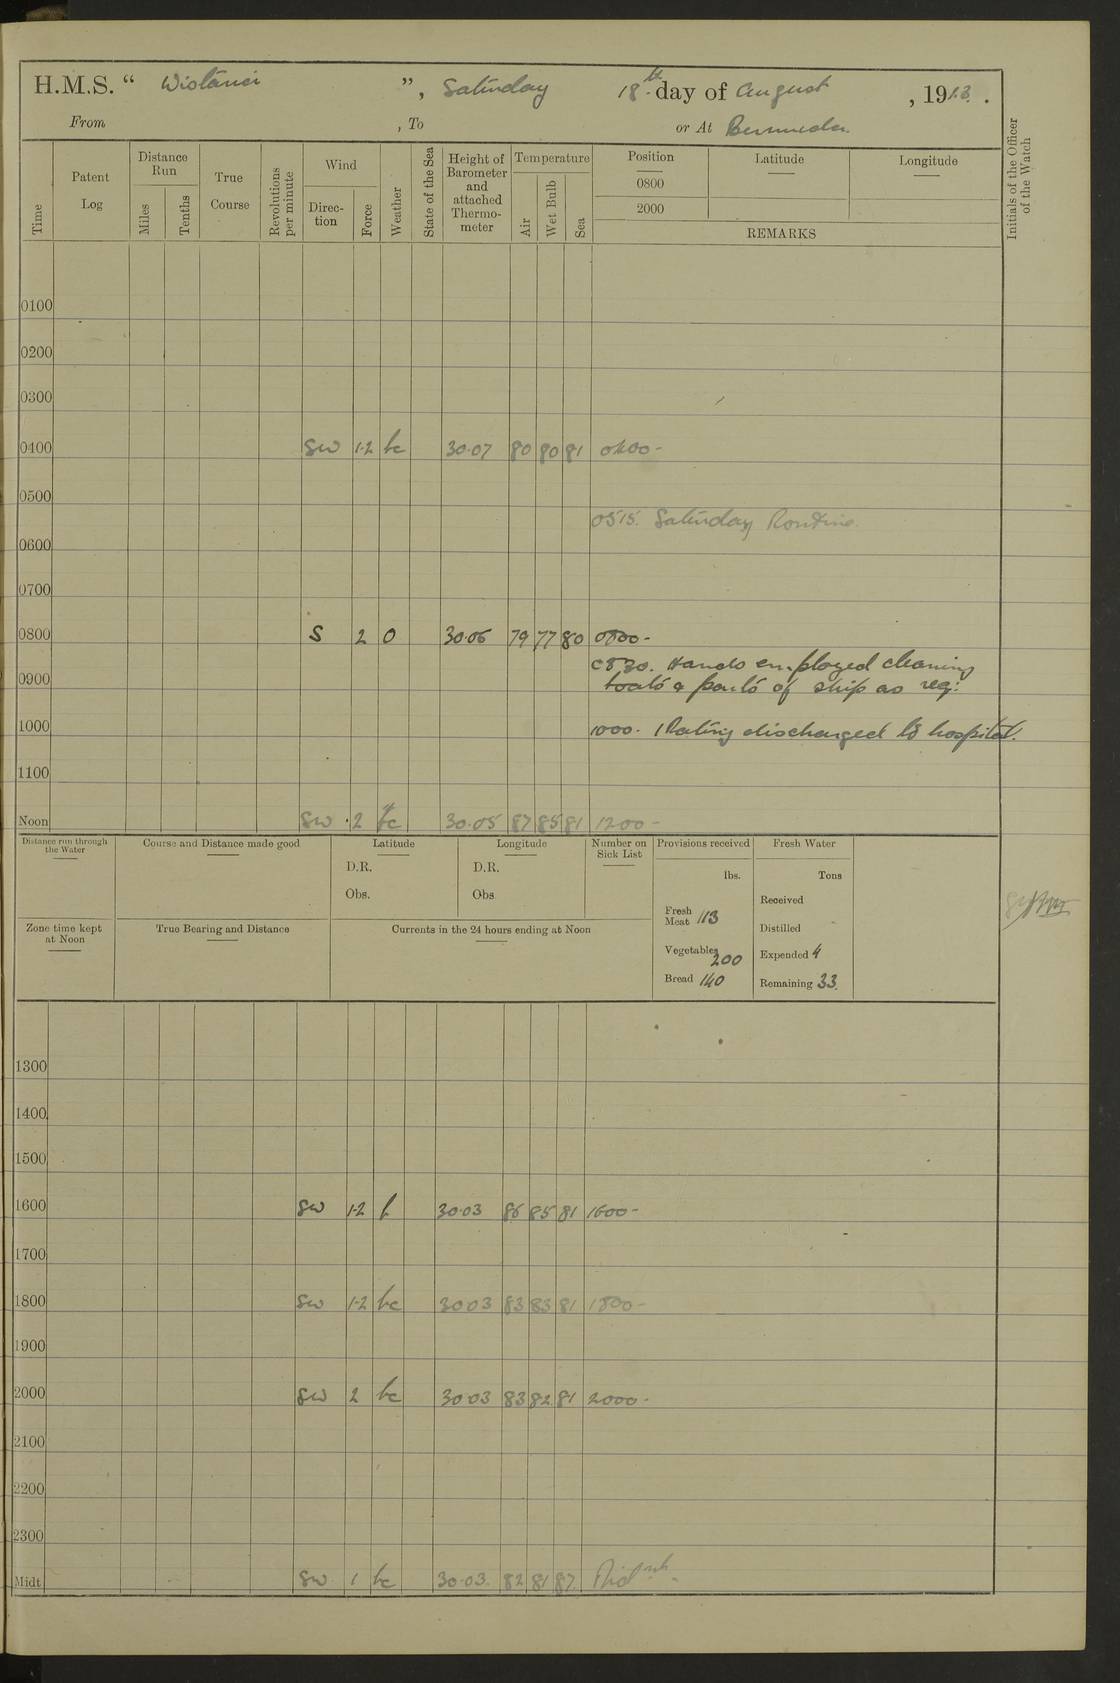 H.M.S. “ Wistaria ”, Saturday 18th day of August , 1923.
From , To or At Bermuda.
Time Patent Log Distance Run Miles Tenths True Course Revolutions per minute Wind Direc-tion Force Weather State of the Sea Height of Barometer and attached Thermo-meter Temperature Air Wet Bulb Sea Position 0800 2000 Latitude Longitude REMARKS Initials of the Officer of the Watch
0100
0200
0300
0400 SW 1-2 bc 30.07 80 80 81 0400-
0500
0515. Saturday Routine.
0600
0700
0800 S 2 O 30.06 79 77 80 0800-
0830. Hands employed cleaning
0900 boats & parts of ship as req:
1000 1000. 1 Rating discharged to hospital.
1100
Noon SW 2 bc 30.05 87 85 81 1200-
Distance run through the Water Course and Distance made good Latitude D.R. Obs. Longitude D.R. Obs. Number on Sick List Provisions received lbs. Fresh Water Tons
Fresh Meat 113 Received
Zone time kept at Noon True Bearing and Distance Currents in the 24 hours ending at Noon Distilled
Vegetables 200 Expended 4
Bread 140 Remaining 33.
1300
1400
1500
1600 SW 1-2 b 30.03 86 85 81 1600-
1700
1800 SW 1-2 bc 30.03 83 83 81 1800-
1900
2000 SW 2 bc 30.03 83 82 81 2000-
2100
2200
2300
Midt SW 1 bc 30.03. 82 81 82 Midnt-